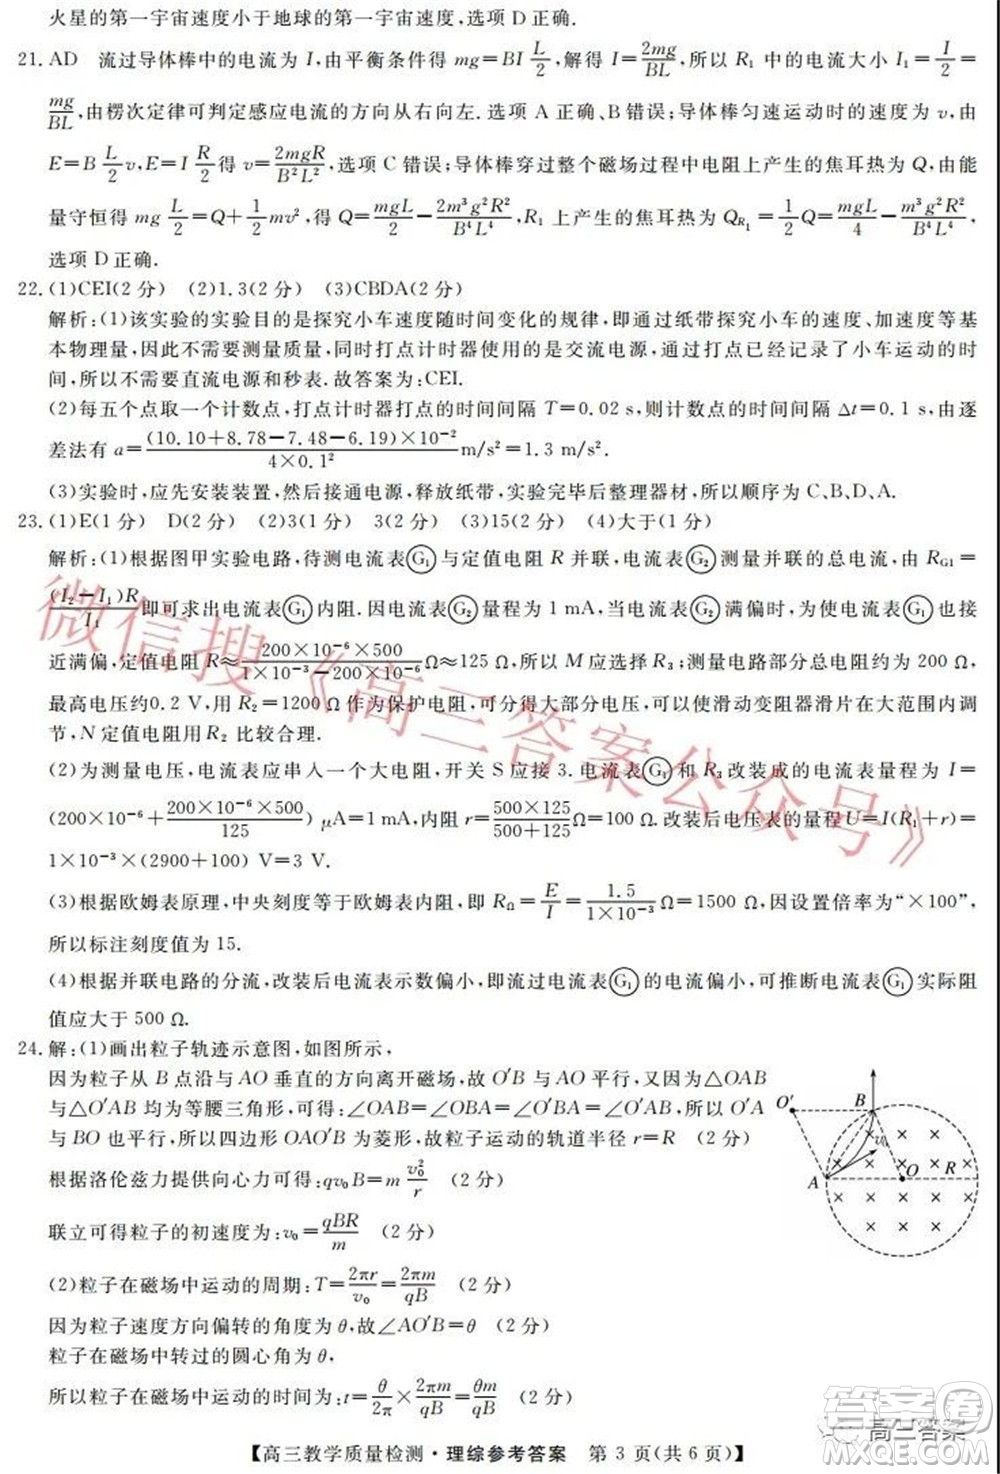 火星的第一宇宙速度小于地球的第一宇宙速度,选项 D 正确.
21. AD 流过导体棒中的电流为 I,由平衡条件得 mg=BI L/2,解得 I=2mg/BL,所以 R₁ 中的电流大小 I₁=I/2=
mg/BL,由楞次定律可判定感应电流的方向从右向左.选项 A 正确、B 错误;导体棒匀速运动时的速度为 v,由
E=B L/2 v,E=I R/2 得 v=2mgR/B²L²,选项 C 错误;导体棒穿过整个磁场过程中电阻上产生的焦耳热为 Q,由能
量守恒得 mg L/2=Q+1/2 mv²,得 Q=mgL/2-2m³g²R²/B⁴L⁴,R₁ 上产生的焦耳热为 Q_R₁=1/2 Q=mgL/4-m³g²R²/B⁴L⁴,
选项 D 正确.
22. (1)CEI(2 分) (2)1.3(2 分) (3)CBDA(2 分)
解析:(1)该实验的实验目的是探究小车速度随时间变化的规律,即通过纸带探究小车的速度、加速度等基
本物理量,因此不需要测量质量,同时打点计时器使用的是交流电源,通过打点已经记录了小车运动的时
间,所以不需要直流电源和秒表.故答案为:CEI.
(2)每五个点取一个计数点,打点计时器打点的时间间隔 T=0.02 s,则计数点的时间间隔 Δt=0.1 s,由逐
差法有 a=(10.10+8.78-7.48-6.19)×10⁻²/4×0.1² m/s²=1.3 m/s².
(3)实验时,应先安装装置,然后接通电源,释放纸带,实验完毕后整理器材,所以顺序为 C、B、D、A.
23. (1)E(1 分) D(2 分) (2)3(1 分) 3(2 分) (3)15(2 分) (4)大于(1 分)
解析:(1)根据图甲实验电路,待测电流表G₁与定值电阻 R 并联,电流表G₂测量并联的总电流,由 R_G1=
(I₂-I₁)R/I₁即可求出电流表G₁内阻.因电流表G₂量程为 1 mA,当电流表G₂满偏时,为使电流表G₁也接
近满偏,定值电阻 R≈200×10⁻⁶×500/1×10⁻³-200×10⁻⁶ Ω≈125 Ω,所以 M 应选择 R₃;测量电路部分总电阻约为 200 Ω,
最高电压约0.2 V,用 R₂=1200 Ω 作为保护电阻,可分得大部分电压,可以使滑动变阻器滑片在大范围内调
节,N 定值电阻用R₂ 比较合理.
(2)为测量电压,电流表应串入一个大电阻,开关 S应接 3.电流表G₁和 R₃改装成的电流表量程为 I=
(200×10⁻⁶+200×10⁻⁶×500/125) μA=1 mA,内阻 r=500×125/500+125 Ω=100 Ω.改装后电压表的量程 U=I(R₁+r)=
1×10⁻³×(2900+100) V=3 V.
(3)根据欧姆表原理,中央刻度等于欧姆表内阻,即 R_Ω=E/I=1.5/1×10⁻³ Ω=1500 Ω,因设置倍率为“×100”,
所以标注刻度值为 15.
(4)根据并联电路的分流,改装后电流表示数偏小,即流过电流表G₁的电流偏小,可推断电流表G₁实际阻
值应大于 500 Ω.
24. 解:(1)画出粒子轨迹示意图,如图所示,
因为粒子从 B 点沿与 AO 垂直的方向离开磁场,故 O′B 与 AO 平行,又因为△OAB
与△O′AB 均为等腰三角形,可得:∠OAB=∠OBA=∠O′BA=∠O′AB,所以 O′A
与 BO 也平行,所以四边形 OAO′B 为菱形,故粒子运动的轨道半径 r=R (2 分)
根据洛伦兹力提供向心力可得:qv₀B=m v₀²/r (2 分)
联立可得粒子的初速度为:v₀=qBR/m (2 分)
(2)粒子在磁场中运动的周期:T=2πr/v₀=2πm/qB (2 分)
因为粒子速度方向偏转的角度为 θ,故∠AO′B=θ (2 分)
粒子在磁场中转过的圆心角为 θ,
所以粒子在磁场中运动的时间为:t=θ/2π×2πm/qB=θm/qB (2 分)
O′ B v₀ A O R
微信搜《高三答案公众号》
高三答案
答案圈
MXQE.COM
【高三教学质量检测·理综参考答案 第 3 页(共 6 页)】